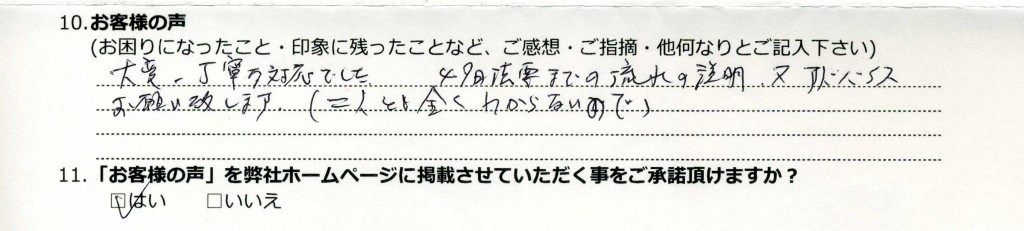 10.お客様の声
(お困りになったこと・印象に残ったことなど、ご感想・ご指摘・他何なりとご記入下さい)
大変、丁寧な対応でした 49日法要までの流れの説明、又アドバイス
お願い致します (二人とも全くわからないので、)
11.「お客様の声」を弊社ホームページに掲載させていただく事をご承諾頂けますか?
☑はい □いいえ